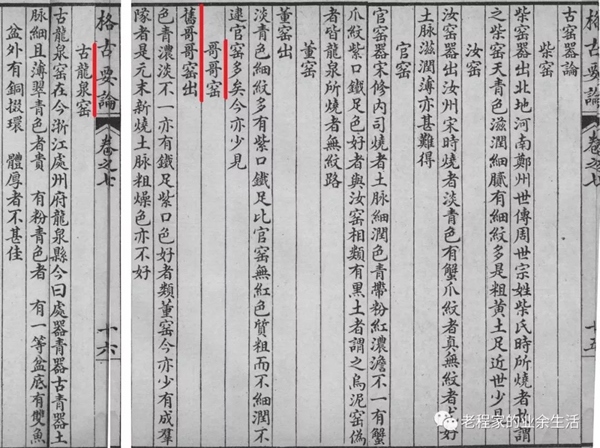 十五
古窑器論
柴窑
柴窑器出北地河南鄭州世傳周世宗姓柴氏時所燒者故謂
之柴窑天青色滋潤細膩有細紋多是粗黃土足近世少見
汝窑
汝窑器出汝州宋時燒者淡青色有蟹爪紋者真無紋者尤好
土脉滋潤薄亦甚難得
官窑
官窑器宋修内司燒者土脉細潤色青帶粉紅濃澹不一有蟹
爪紋紫口鐵足色好者與汝窑相類有黑土者謂之烏泥窑偽
者皆龍泉所燒者無紋路
董窑
董窑出
淡青色細紋多有紫口鐵足比官窑無紅色質粗而不細潤不
逮官窑多矣今亦少見
哥哥窑
舊哥哥窑出
色青濃淡不一亦有鐵足紫口色好者類董窑今亦少有成羣
隊者是元末新燒土脉粗燥色亦不好
格古要論 卷之七 十六
古龍泉窑
古龍泉窑在今浙江處州府龍泉縣今曰處器青器古青器土
脉細且薄翠青色者貴 有粉青色者 有一等盆底有雙魚
盆外有銅掇環 體厚者不甚佳
老程家的业余生活